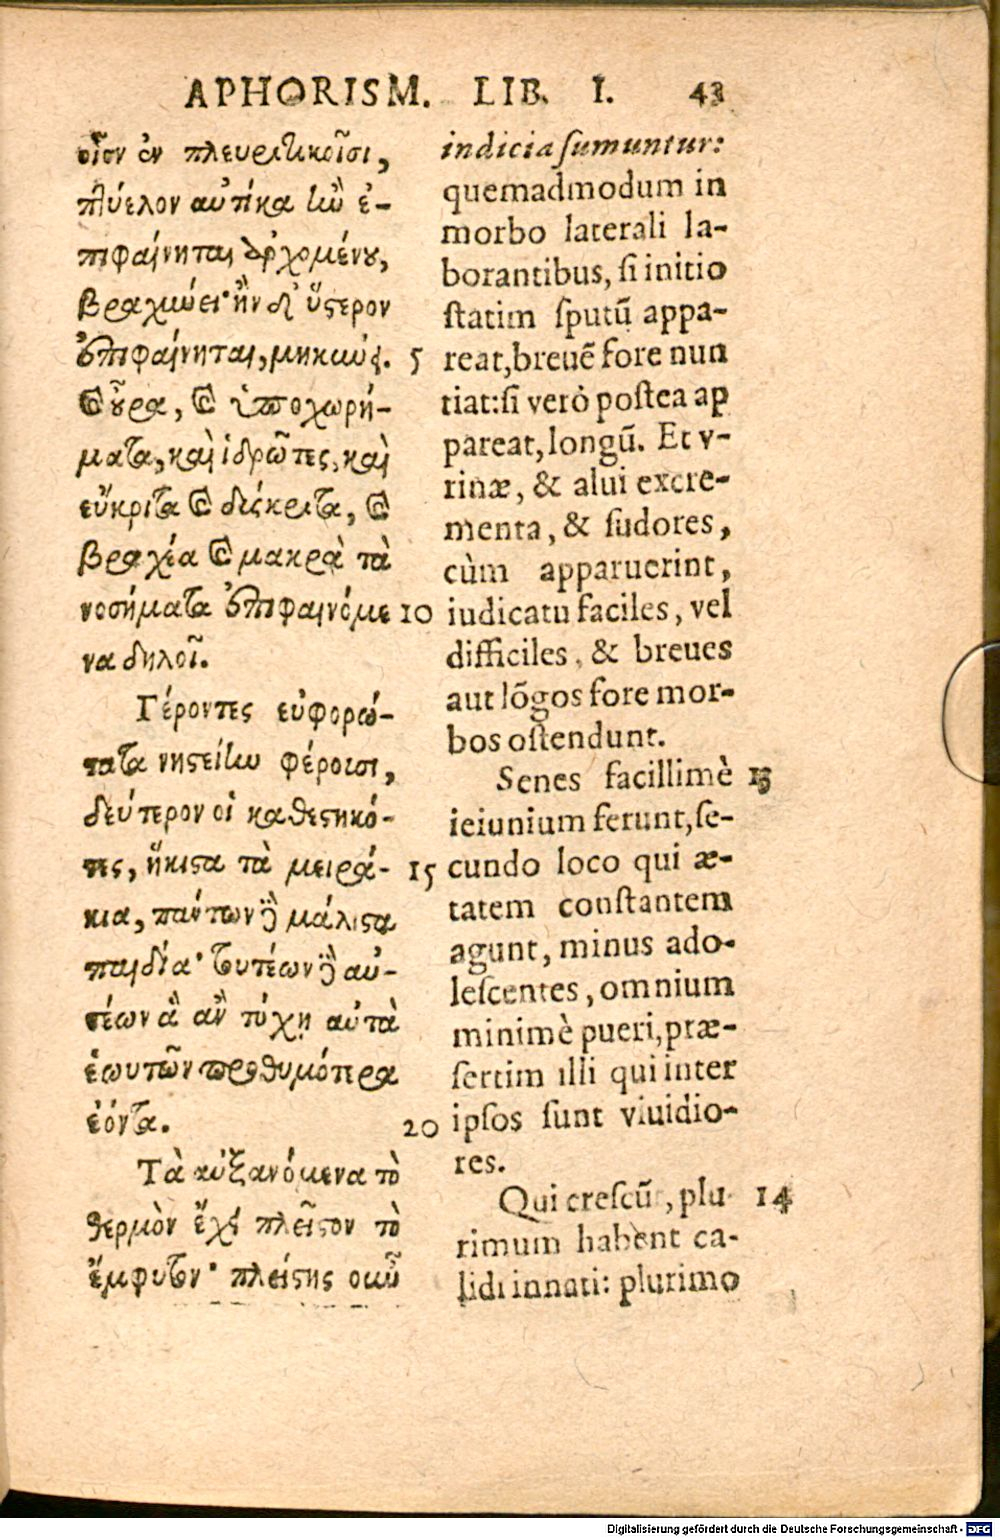 APHORISM. LIB. I. 43
οἷον ἐν πλευριτικοῖσι,
πτύελον αὐτίκα ἢν ἐ-
πιφαίνηται ἀρχομένου,
βραχύνει· ἢν δ' ὕστερον
ἐπιφαίνηται, μηκύνει. 5
καὶ οὖρα, καὶ ὑποχωρή-
ματα, καὶ ἱδρῶτες, καὶ
εὔκριτα καὶ δύσκριτα, καὶ
βραχέα καὶ μακρὰ τὰ
νοσήματα ἐπιφαινόμε 10
να δηλοῖ.
Γέροντες εὐφορώ-
τατα νηστείην φέρουσι,
δεύτερον οἱ καθεστηκό-
τες, ἥκιστα τὰ μειρά- 15
κια, πάντων δὲ μάλιστα
παιδία· τουτέων δὲ αὐ-
τέων ἃ ἂν τύχῃ αὐτὰ
ἑωυτῶν προθυμότερα
ἐόντα. 20
Τὰ αὐξανόμενα τὸ
θερμὸν ἔχει πλεῖστον τὸ
ἔμφυτον· πλείστης οὖν
indicia ſumuntur:
quemadmodum in
morbo laterali la-
borantibus, ſi initio
ſtatim ſputū appa-
reat, breuē fore nun
tiat: ſi verò poſtea ap
pareat, longū. Et v-
rinæ, & alui excre-
menta, & ſudores,
cùm apparuerint,
iudicatu faciles, vel
difficiles, & breues
aut lōgos fore mor-
bos oſtendunt.
Senes facillimè 13
ieiunium ferunt, ſe-
cundo loco qui æ-
tatem conſtantem
agunt, minus ado-
leſcentes, omnium
minimè pueri, præ-
ſertim illi qui inter
ipſos ſunt viuidio-
res.
Qui creſcūt, plu 14
rimum habent ca-
lidi innati: plurimo
Digitalisierung gefördert durch die Deutsche Forschungsgemeinschaft - DFG